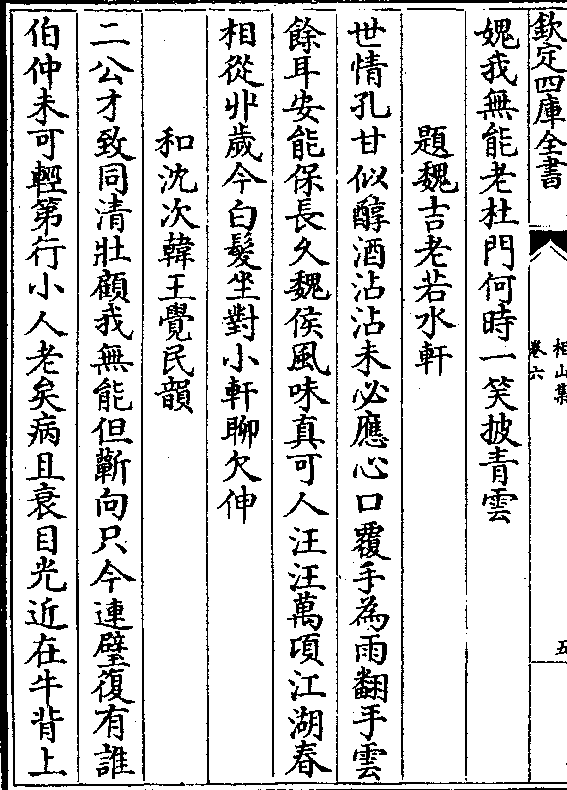 欽定四庫全書
相山集
卷六
五
媿我無能老杜門何時一笑披青雲
題魏吉老若水軒
世情孔甘似醇酒沾沾未必應心口覆手為雨翻手雲
餘耳安能保長久魏侯風味真可人汪汪萬頃江湖春
相從丱歲今白髮坐對小軒聊欠伸
和沈次韓王覺民韻
二公才致同清壯顧我無能但蘄向只今連璧復有誰
伯仲未可輕第行小人老矣病且衰目光近在牛背上